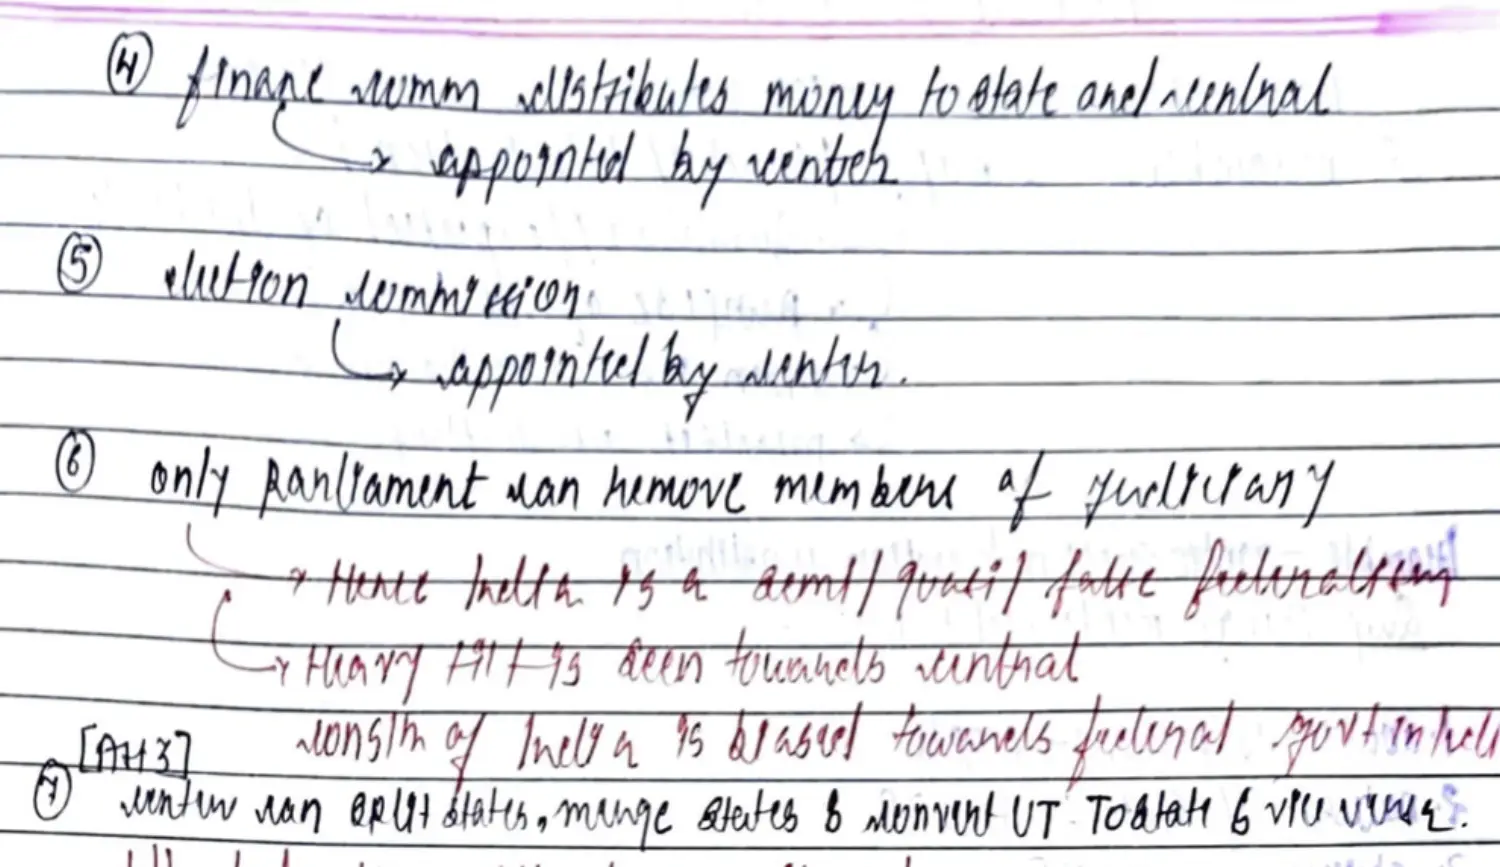 ④ finance comm distributes money to state and central
→ appointed by center
⑤ election commission.
→ appointed by center.
⑥ only parliament can remove members of judiciary
→ Hence India is a semi/quasi/false federalism
→ Heavy tilt is seen towards central
constn of India is biased towards federal govt
[Art 3]
⑦ center can split states, merge states & convert UT To state & vice versa.